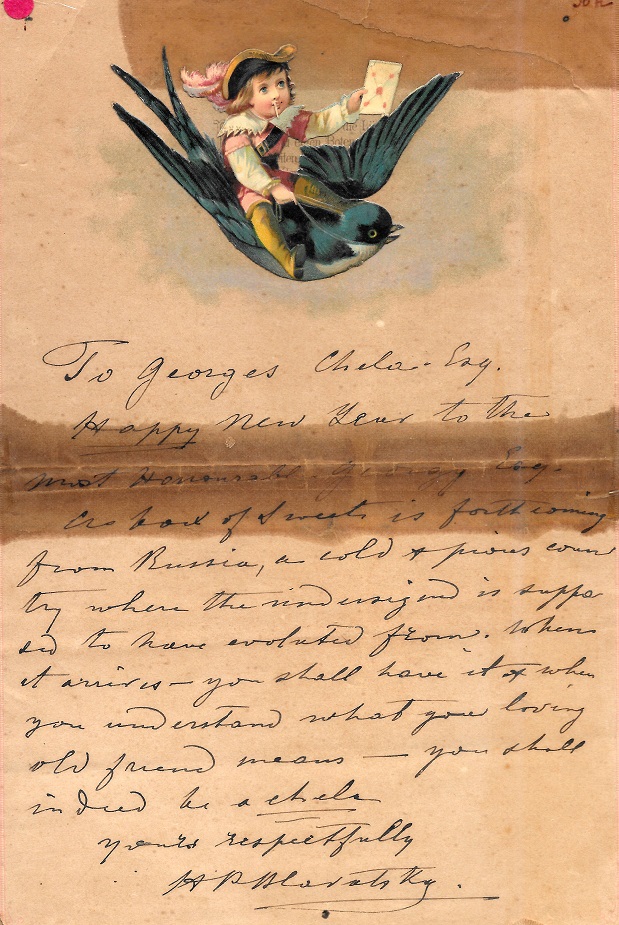 To Georges Chela - Esq.
Happy New Year to the
most Honourable Georgy Esq.
A box of Sweets is forthcoming
from Russia, a cold & pious coun
try where the undersigned is suppo
sed to have evoluted from. When
it arrives — you shall have it & when
you understand what your loving
old friend means — you shall
indeed be a chela
yours respectfully
H P Blavatsky.